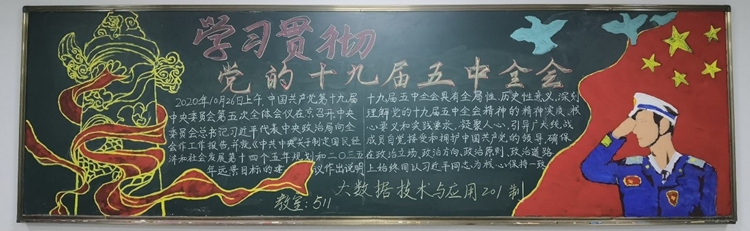 学习贯彻
党的十九届五中全会
2020年10月26日上午,中国共产党第十九届
中央委员会第五次全体会议在京召开,中央
委员会总书记习近平代表中央政治局向全
会作工作报告,并就《中共中央关于制定国民经
济和社会发展第十四个五年规划和二〇三五
年远景目标的建议》作出说明
十九届五中全会具有全局性、历史性意义,深刻
理解党的十九届五中全会精神的精神实质、核
心要义和实践要求,凝聚人心,引导广大统战
成员自觉接受和拥护中国共产党的领导,确保
在政治立场、政治方向、政治原则、政治道路
上始终同以习近平同志为核心保持一致
大数据技术与应用201制
教室:511